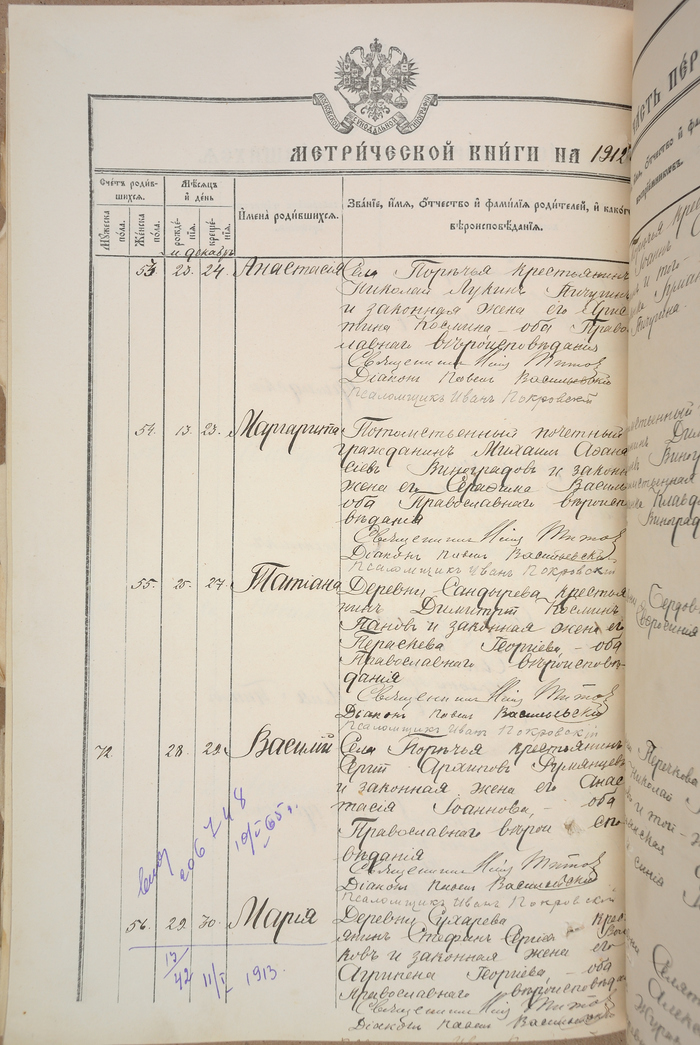 МЕТРИЧЕСКОЙ КНИГИ НА 1912
Счетъ родив-
шихся.
Мѣсяцъ
и день
Мужеска
пола.
Женска
пола.
рожде-
нія.
креще-
нія.
Имена родившихся.
Званіе, имя, отчество и фамилія родителей, и каког
вѣроисповѣданія.
декабрь
53 23. 24. Анастасія Села Порѣчья крестьянинъ
Николай Лукинъ Пичугинъ
и законная жена его Хрис
тина Космина – оба Право
славнаго вѣроисповѣданія
Священникъ Титов
Діаконъ Павелъ Васильевскій
Псаломщикъ Иванъ Покровскій
54. 13. 23. Маргарита Потомственный почетный
гражданинъ Михаилъ Афана
сіевъ Виноградовъ и законн
жена его Серафима Васил
оба Православнаго вѣроиспо
вѣданія
Священникъ Титов
Діаконъ Павелъ Васильевскій
Псаломщикъ Иванъ Покровскій
55. 25. 27. Татіана Деревни Сандырева крестья
нинъ Димитрій Косминъ
Пановъ и законная жена его
Параскева Георгіева – оба
Православнаго вѣроисповѣ-
данія
Священникъ Титов
Діаконъ Павелъ Васильевскій
Псаломщикъ Иванъ Покровскій
72 28. 29. Василій Села Порѣчья крестьянинъ
Сергій Архиповъ Румянцевъ
и законная жена его Анас
тасія Іоаннова, – оба
Православнаго вѣрои спо
вѣданія
Священникъ Титов
Діаконъ Павелъ Васильевскій
Псаломщикъ Иванъ Покровскій
206748
19/I 65 г.
56. 29. 30. Марія Деревни Сухарева крес
янинъ Стефанъ Сергіевъ Вол
ковъ и законная жена его
Агрипена Георгіева – оба
Православнаго вѣроисповѣда
Священникъ Титов
Діаконъ Павелъ Васильевскій
17/42 11/I 1913.